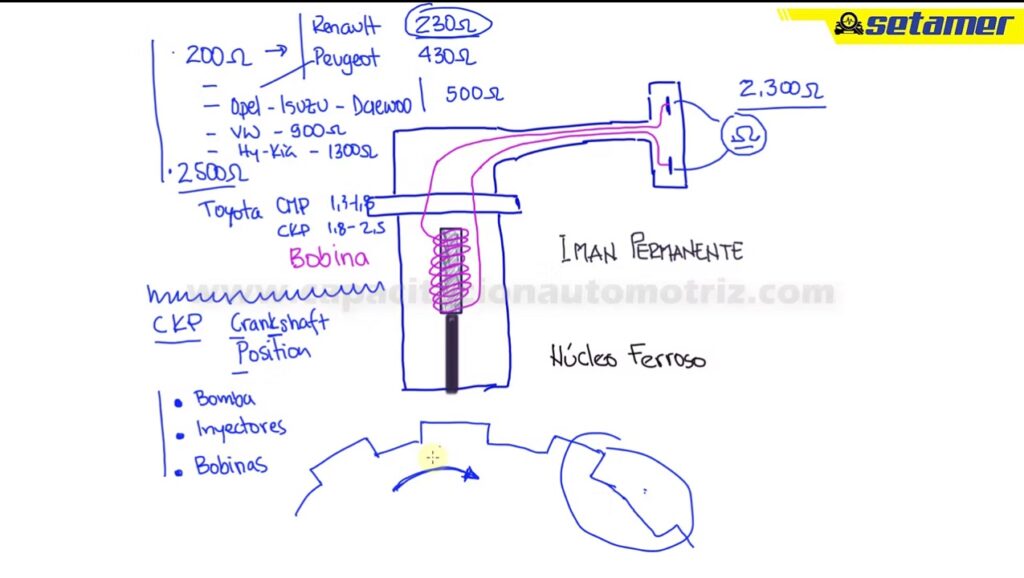 setamer
Renault 230Ω
200Ω → Peugeot 430Ω
2.300Ω
– Opel - Isuzu - Daewoo 500Ω
Ω
– VW - 900Ω
– Hy-Kia - 1300Ω
· 2500Ω
Toyota CMP 1,3-1,8
CKP 1,8-2,5
Bobina
IMAN PERMANENTE
CKP Crankshaft
Position
Núcleo Ferroso
• Bomba
• Inyectores
• Bobinas